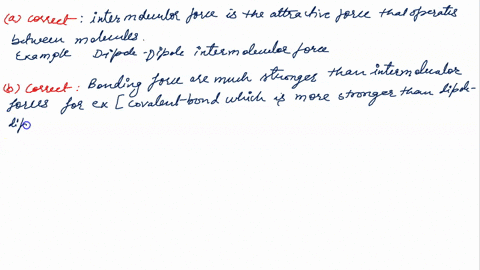 (a) correct : intermolecular force is the attractive force that operates
between molecules.
Example Dipole-Dipole intermolecular force
(b) correct : Bonding force are much stronges than intermolecular
forces for ex [ covalent bond which is more stronger than dipole-
dipo